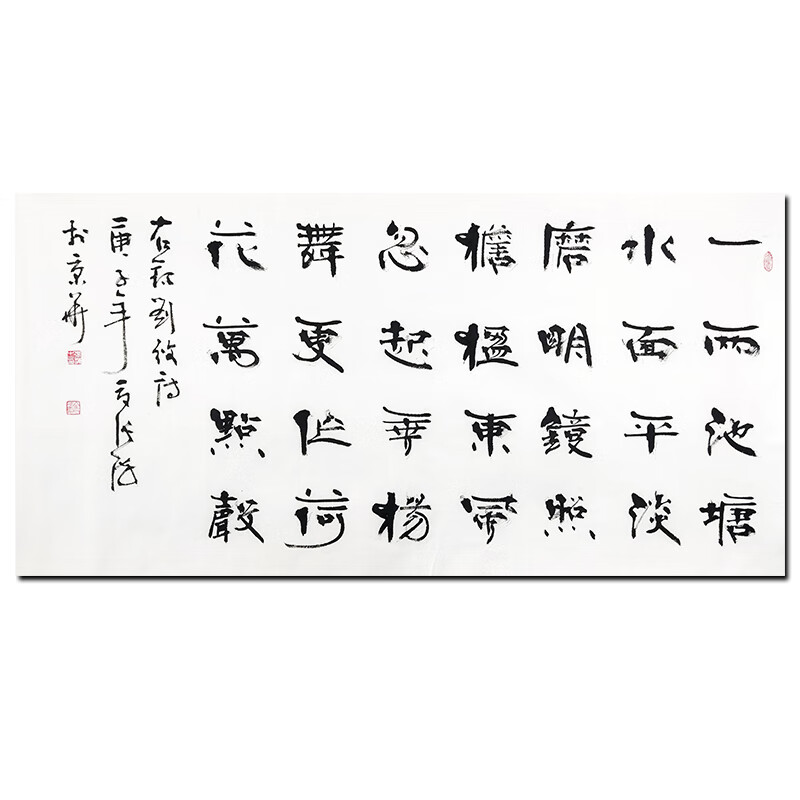 一雨池塘
水面平淡
磨明鏡照
檐楹東風
忽起垂楊
舞更作荷
花萬點聲
右録劉攽詩
庚子年
於京華